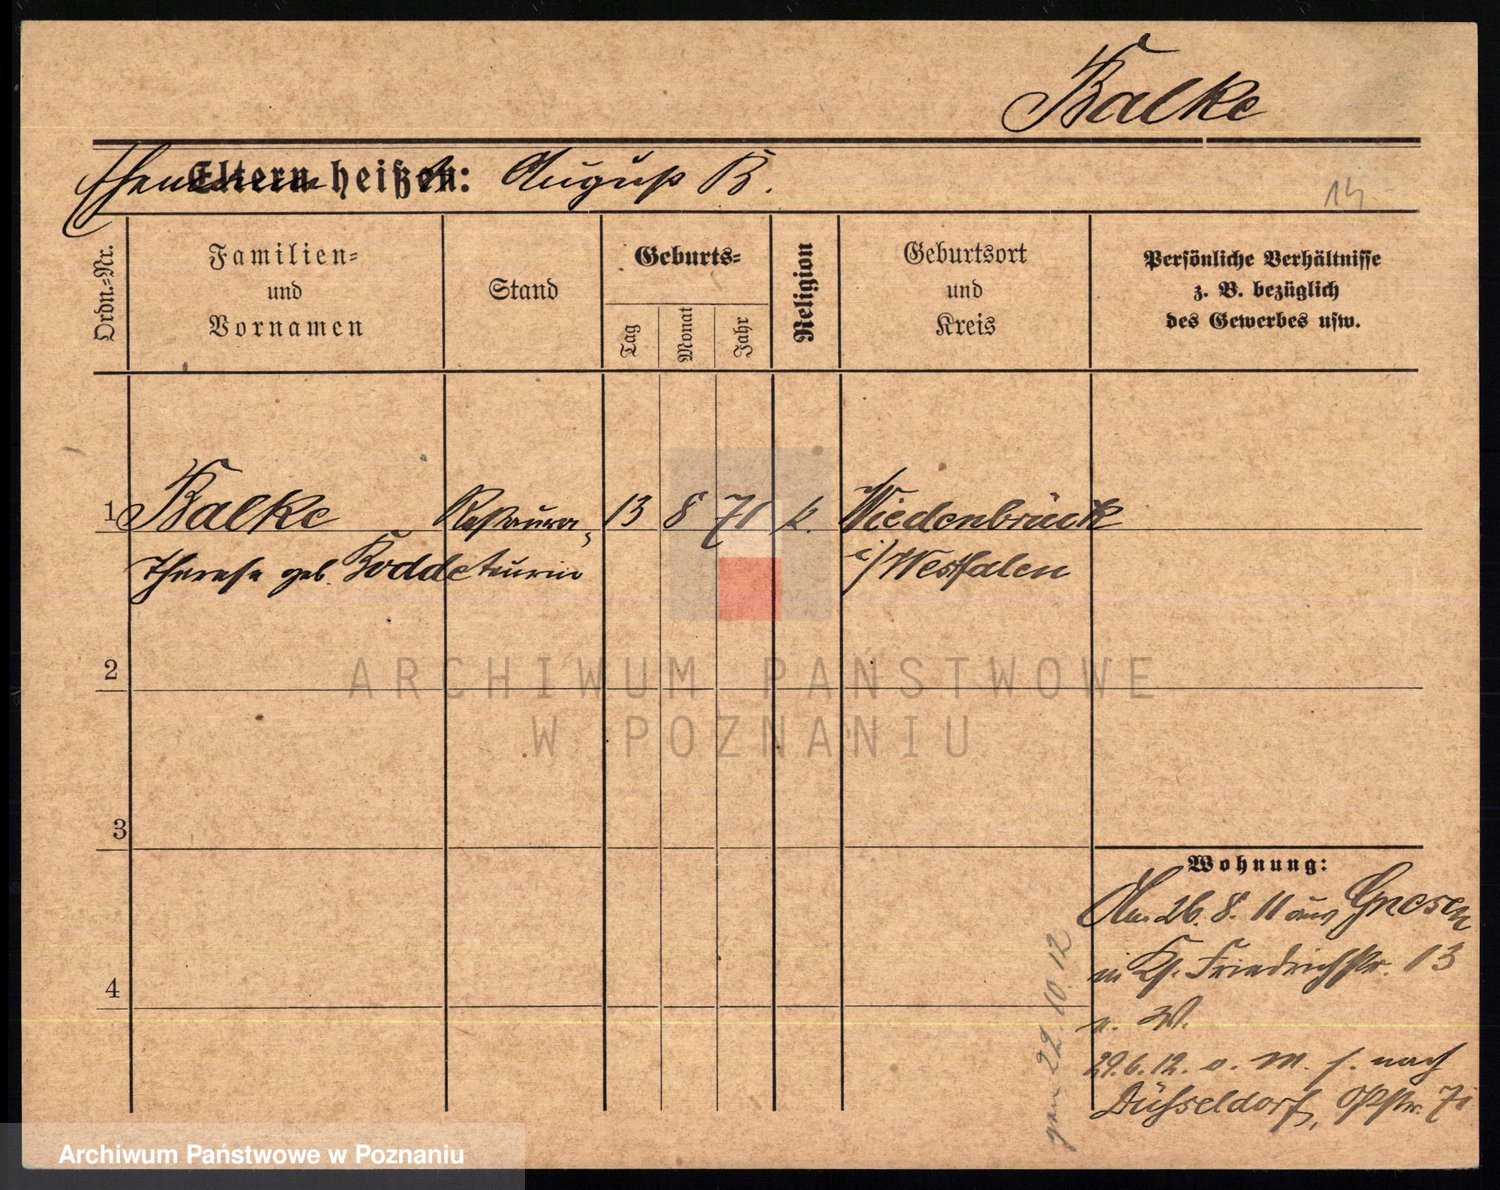 Balke
Eltern heißen: August B.
14
Ordn.=Nr.
Familien=
und
Vornamen
Stand
Geburts=
Tag
Monat
Jahr
Religion
Geburtsort
und
Kreis
Persönliche Verhältnisse
z. B. bezüglich
des Gewerbes usw.
1 Balke Restaura- 13 8 71 k. Wiedenbrück
Therese geb. Kodde teurin i/Westfalen
2
3
4
Wohnung:
Am 26. 8. 11 aus Gnesen
in Friedrichstr. 13
v. W.
29.6.12. o. M. f. nach
Düsseldorf,
22.10.12
ARCHIWUM PAŃSTWOWE
W POZNANIU
Archiwum Państwowe w Poznaniu